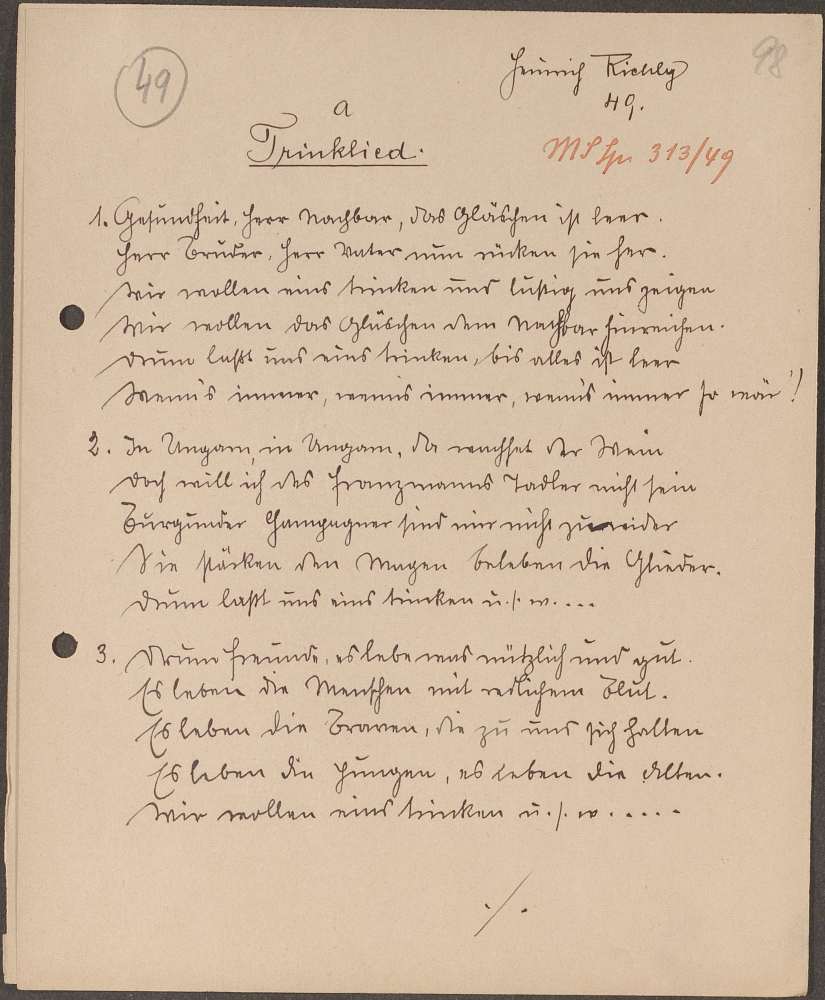 49
98
Heinrich Richly
49.
a
Trinklied.
MS Sp 313/49
1. Gesundheit, Herr Nachbar, das Gläschen ist leer.
Herr Bruder, Herr Vater nun rücken sie her.
Wir wollen eins trinken uns lustig uns zeigen
Wir wollen das Gläschen dem Nachbar hinreichen.
Drum laßt uns eins trinken, bis alles ist leer
Wenn's immer, wenn's immer, wenn's immer so wär'!
2. In Ungarn, in Ungarn, da wachset der Wein
Doch will ich des Franzmanns Tadler nicht sein
Burgunder Champagner sind mir nicht zuwider
Sie stärken den Magen beleben die Glieder.
Drum laßt uns eins trinken u. s. w. ...
3. Drum Freunde, es lebe was nützlich und gut.
Es leben die Menschen mit redlichem Blut.
Es leben die Braven, die zu uns sich halten
Es leben die Jungen, es leben die Alten.
Wir wollen eins trinken u. s. w. .....
./.